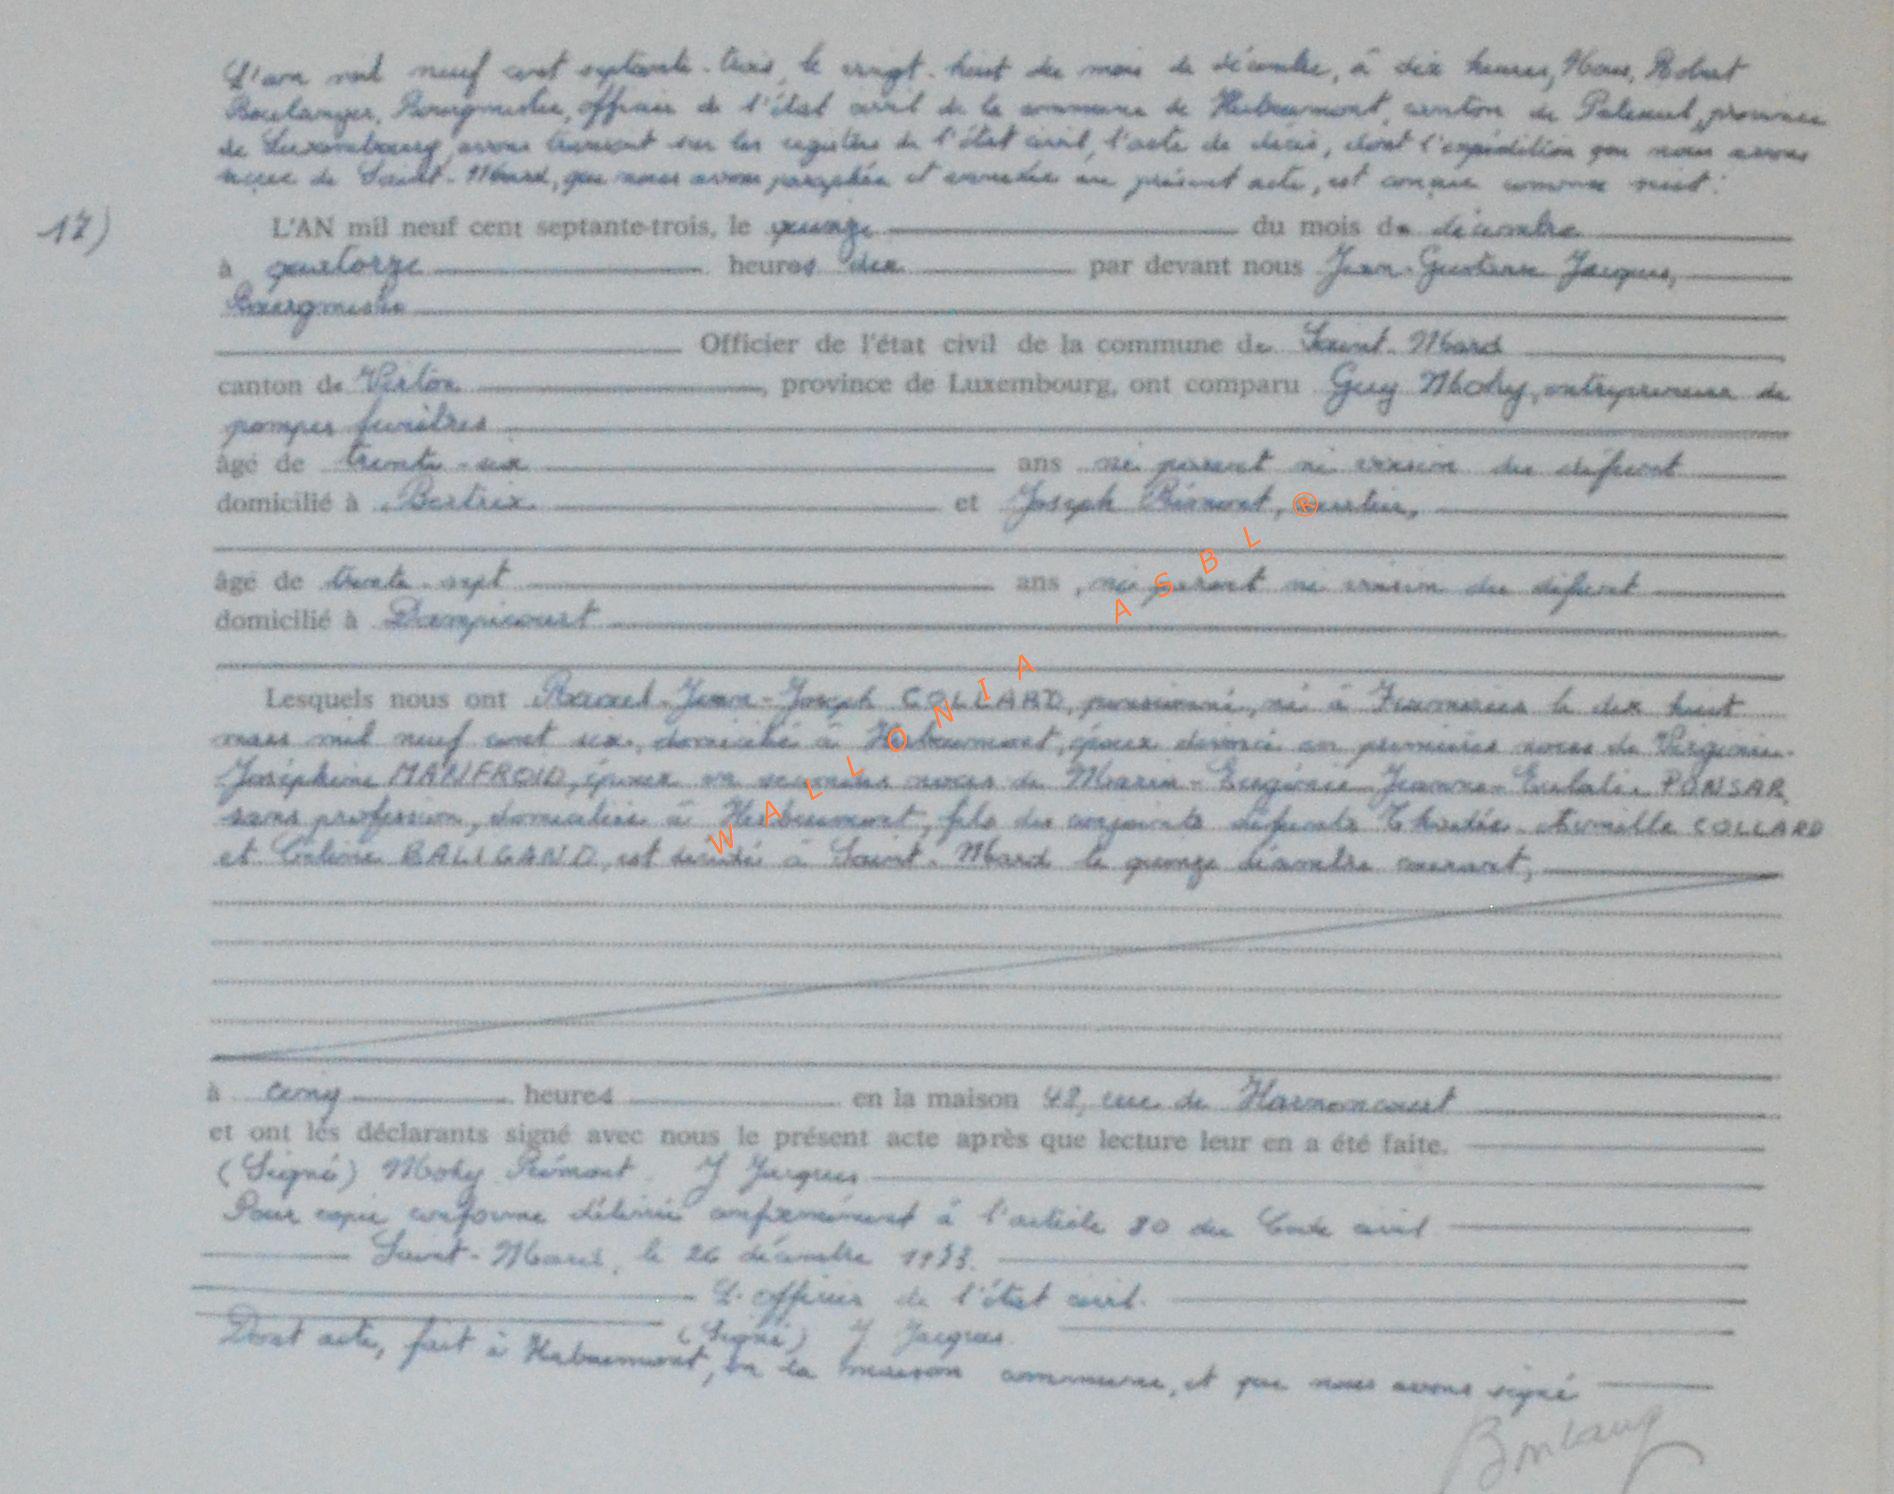 L'an mil neuf cent septante-trois, le vingt-huit du mois de décembre, à dix heures, Nous, Robert
Boulanger, Bourgmestre, officier de l'état civil de la commune de Herbeumont, canton de Paliseul, province
de Luxembourg, avons transcrit sur les registres de l'état civil, l'acte de décès, dont l'expédition que nous avons
reçue de Saint-Mard, que nous avons paraphée et annexée au présent acte, est conçue comme suit:
17)
L'AN mil neuf cent septante-trois, le quinze du mois de décembre
à quatorze heures dix par devant nous Jean-Gustave Jacques,
Bourgmestre
Officier de l'état civil de la commune de Saint-Mard
canton de Virton, province de Luxembourg, ont comparu Guy Mohy, entrepreneur de
pompes funèbres
âgé de trente-six ans ni parent ni voisin du défunt
domicilié à Bertrix et Joseph Rémont,
âgé de trente-sept ans, ni parent ni voisin du défunt
domicilié à Dampicourt
Lesquels nous ont Raoul-Jean-Joseph COLLARD, pensionné, né à le dix huit
mars mil neuf cent six, domicilié à Herbeumont, époux divorcé en premières noces de Virginie-
Joséphine MANFROID, époux en secondes noces de Marie-Eugénie-Jeanne-Eulalie PONSAR,
sans profession, domiciliée à Herbeumont, fils des conjoints défunts COLLARD
et BALIGAND, est décédé à Saint-Mard le quinze décembre courant,
à cinq heures en la maison 42, rue de Harnoncourt
et ont les déclarants signé avec nous le présent acte après que lecture leur en a été faite.
(Signé) Mohy Rémont J Jacques
Pour copie conforme délivrée conformément à l'article 80 du Code civil
Saint-Mard, le 26 décembre 1973.
L'officier de l'état civil.
(Signé) J Jacques
Dont acte, fait à Herbeumont, en la maison commune, et que nous avons signé
Boulang
WALLONIA ASBL ®